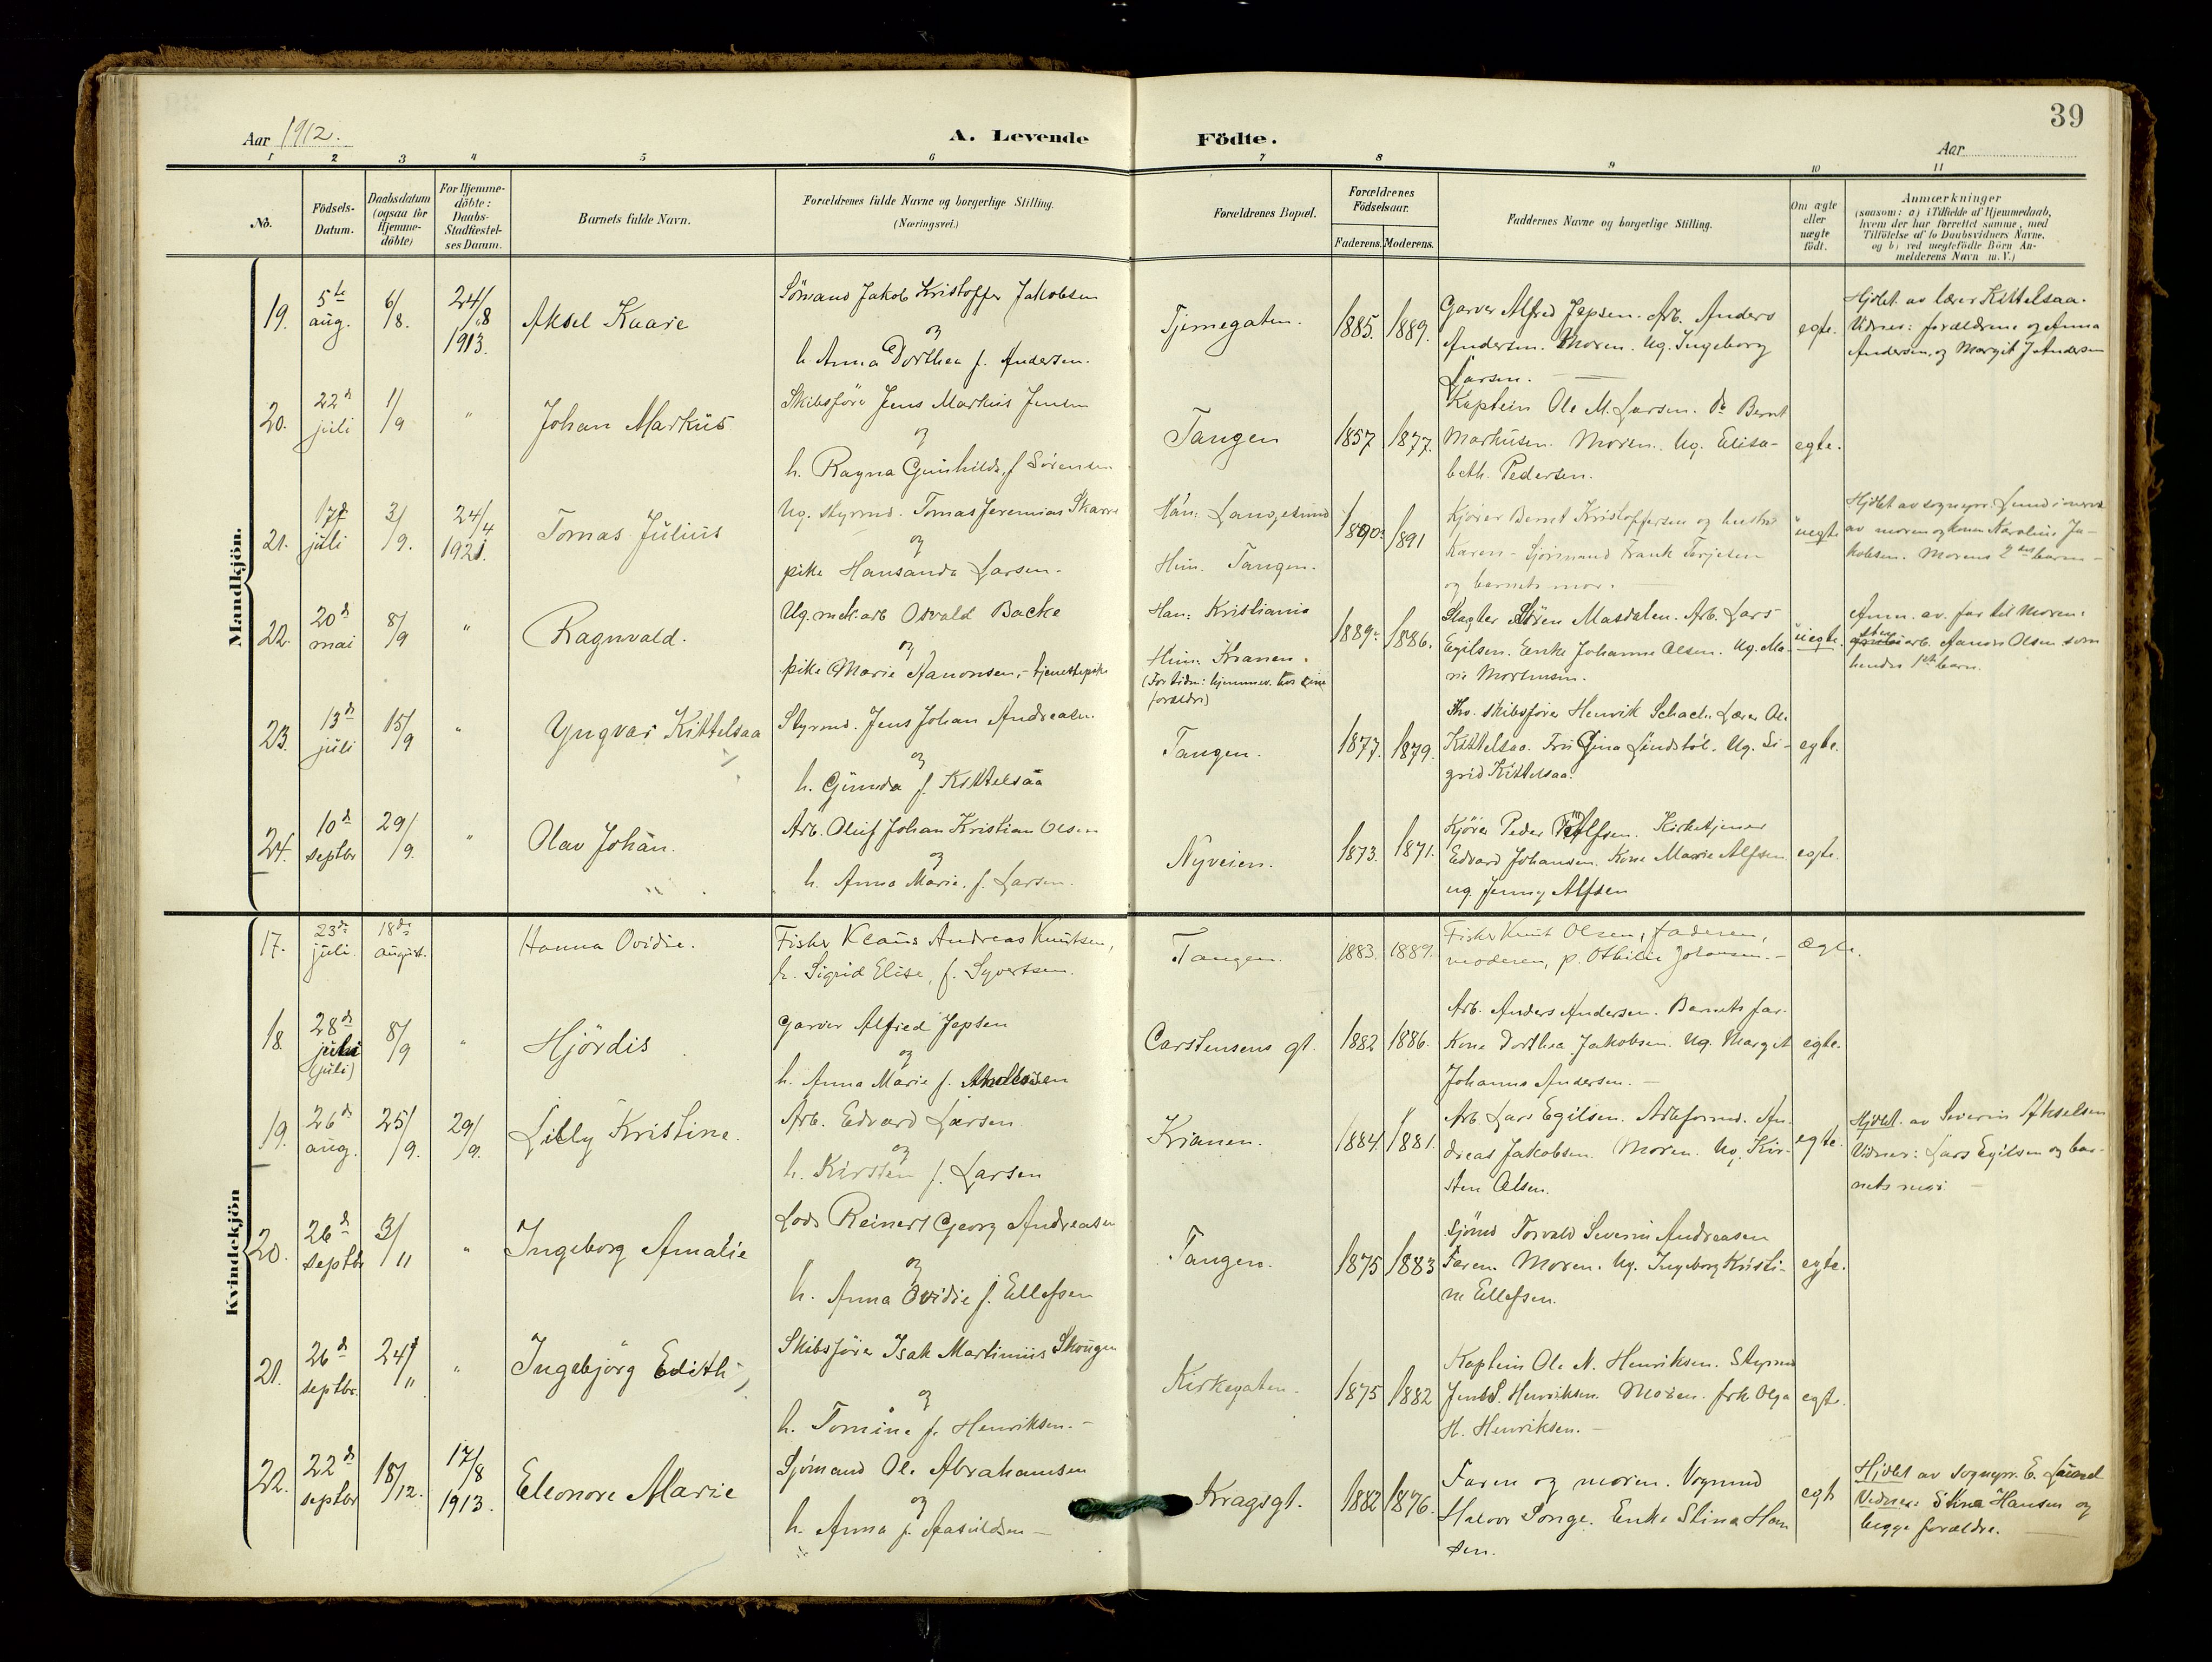 39
Aar 1912.
A. Levende Födte.
Aar
1 2 3 4 5 6 7 8 9 10 11
No.
Födsels-Datum.
Daabsdatum (ogsaa for Hjemme-döbte)
For Hjemme-döbte: Daabs-Stadfæstel-ses Datum.
Barnets fulde Navn.
Forældrenes fulde Navne og borgerlige Stilling.
(Næringsvei.)
Forældrenes Bopæl.
Forældrenes Födselsaar.
Faderens. Moderens.
Faddernes Navne og borgerlige Stilling.
Om ægte eller uægte födt.
Anmærkninger
(saasom: a) i Tilfælde af Hjemmedaab,
hvem der har forrettet samme, med
Tilföielse af to Daabsvidners Navne,
og b) ved uægtefödte Börn An-
melderens Navn m. V.)
Mandkjön.
19.
5te aug.
6/8.
24/8 1913.
Aksel Kaare
Sömand Jakob Kristoffer Jakobsen
og
h. Anna Dorthea f. Andersen.
Tjernegaten.
1885. 1889.
Garver Alfred Jepsen. Arb. Anders
Andersen. Moren. Ug. Ingeborg
Larsen.
egte.
Hjdbt. av lærer Kittelsaa.
Vidner: forældrene og Anna
Andersen, og Margit J Andersen
20.
22d juli
1/9
"
Johan Markus
Skibsförer Jens Markus Jensen
og
h. Ragna Gunhilda, f Sörensen
Tangen
1857 1877.
Kaptein Ole M. Larsen. Do Bernt
Markusen. Moren. Ug. Elisa-
beth Pedersen.
egte.
21.
17d juli
3/9.
24/4 1921.
Tomas Julius
Ug. styrmd. Tomas Jeremias Skarre
og
pike Hansanda Larsen.
Han: Langesund
Hun: Tangen.
1890. 1891
Kjörer Bernt Kristoffersen og hustru
Karen - Sjömand Frank Terjesen
og barnets mor.
uegte
Hjdbt av sognepr. Lund i nærv.
av moren og konen Karoline Ja-
kobsen. Morens 2det barn -
22.
20d mai
8/9
"
Ragnvald.
Ug. mek. arb Osvald Backe
og
pike Marie Aanonsen, - tjenestepike
Han: Kristiania
Hun: Kranen.
(For tiden: hjemmev. hos sine
forældre)
1889. 1886.
Slagter Sören Masdalen. Arb. Lars
Egilsen. Enke Johanne Olsen. Ug. Ma-
rie Mortensen.
uegte.
Anm. av. far til Moren:
arb. Aanon Olsen som
hendes 1ste barn.
23.
13d juli
15/9
"
Yngvar Kittelsaa
Styrmd. Jens Johan Andreasen.
og
h. Gunda f. Kittelsaa
Tangen.
1877. 1879.
Fhv. skibsförer Henrik Schach. Lærer Ole
Kittelsaa. Fru Gina Lindstöl. Ug. Si-
grid Kittelsaa.
egte.
24.
10d septbr
29/9.
"
Olav Johan.
Arb. Oluf Johan Kristian Olsen
og
h. Anna Marie. f. Larsen.
Nyveien.
1873. 1871.
Kjörer Peder Alfsen. Kirketjener
Edvard Johansen. Kone Marie Alfsen
ug. Jenny Alfsen
egte.
Kvindekjön
17.
23de juli.
18de august.
Hanna Ovidie.
Fisker Klaus Andreas Knutsen,
h. Sigrid Elise, f. Syvertsen.
Tangen.
1883. 1889.
Fisker Knut Olsen, faderen,
moderen, p. Othilie Johansen. -
ægte.
18.
28de juli (juli)
8/9
"
Hjördis
Garver Alfred Jepsen
og
h. Anna Marie f. Andersen
Carstensens gt.
1882 1886.
Arb. Anders Andersen. Barnets far.
Kone Dorthea Jakobsen. Ug. Margit
Johanne Andersen. -
egte.
19.
26de aug.
25/9.
29/9.
Lilly Kristine.
Arb. Edvard Larsen
og
h. Kirsten f. Larsen
Kranen.
1884. 1881.
Arb. Lars Egilsen. Arbformd. An-
dreas Jakobsen. Moren. Ug. Kir-
sten Olsen.
egte.
Hjdbt. av Severin Akselsen
Vidner: Lars Egilsen og bar-
nets mor. -
20.
26d septbr
3/11
"
Ingeborg Amalie
Lods Reinert Georg Andreasen
og
h. Anna Ovidie f. Ellefsen
Tangen.
1875 1883
Sjömd Torvald Severin Andreasen
Faren. Moren. Ug. Ingeborg Kristi-
ne Ellefsen.
egte.
21.
26d septbr.
24/11
"
Ingebjörg Edith
Skibsförer Isak Martinius Skougen
og
h. Tomine f. Henriksen. -
Kirkegaten.
1875 1882
Kaptein Ole N. Henriksen. Styrmd
Jens S. Henriksen. Moren. frk Olga
H. Henriksen. -
egte.
22.
22d septbr
18/12.
17/8 1913.
Eleonore Marie
Sjömand Ole Abrahamsen
og
h. Anna f. Aasuldsen -
Kragsgt.
1882 1876.
Faren og moren. Vognmd
Halvor Songe. Enke Stina Han
sen.
egte
Hjdbt av Sognepr. E. Lund
Vidner: Stina Hansen og
begge forældre.